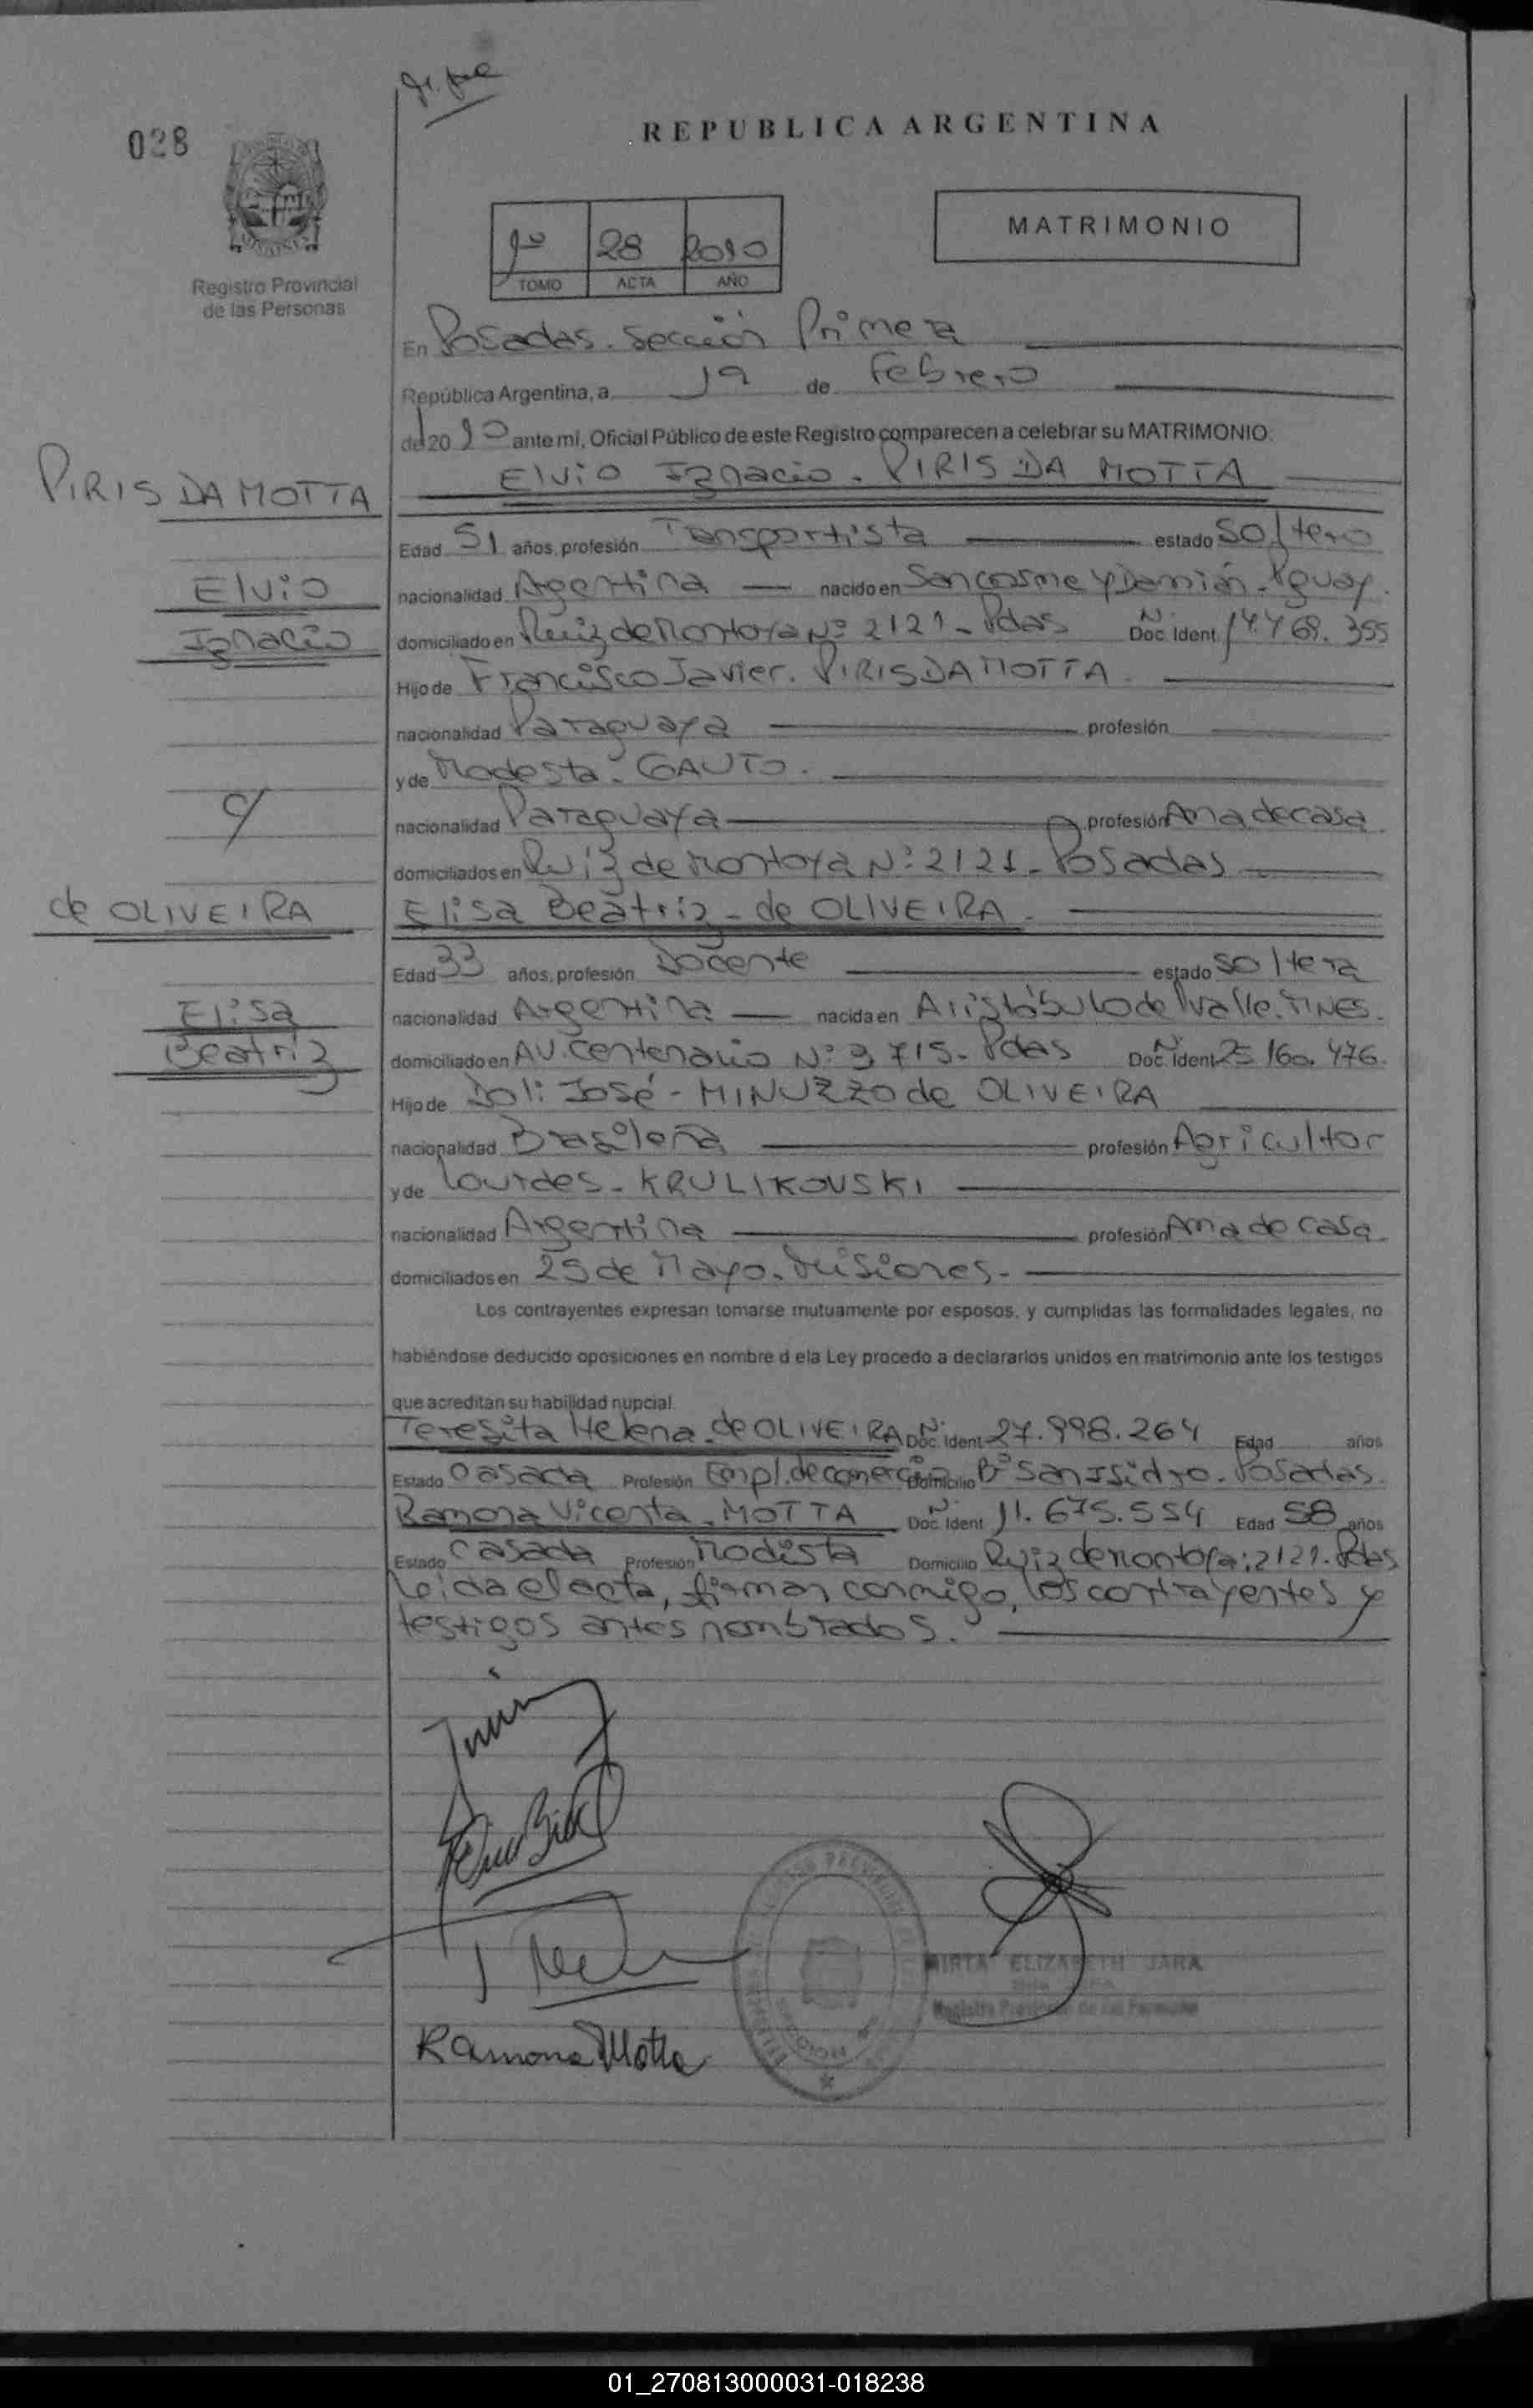 028
REPUBLICA ARGENTINA
Registro Provincial
de las Personas
1º 28 2010
TOMO ACTA AÑO
MATRIMONIO
En Posadas. Sección Primera
República Argentina, a 19 de Febrero
del 20 10 ante mí, Oficial Público de este Registro comparecen a celebrar su MATRIMONIO:
PIRIS DA MOTTA
Elvio Ignacio. PIRIS DA MOTTA
Edad 51 años, profesión Transportista estado Soltero
Elvio
nacionalidad Argentina nacido en San Cosme y Damián. Pguay.
Ignacio
domiciliado en Ruiz de Montoya Nº 2121 - Pdas Doc. Ident. 14.468.355
Hijo de Francisco Javier. PIRIS DA MOTTA.
nacionalidad Paraguaya profesión
y de Modesta. GAUTO.
c/
nacionalidad Paraguaya profesión Ama de casa
domiciliados en Ruiz de Montoya Nº 2121 - Posadas
de OLIVEIRA
Elisa Beatriz - de OLIVEIRA.
Edad 33 años, profesión Docente estado soltera
Elisa
nacionalidad Argentina nacida en Aristóbulo del Valle. MNES.
Beatriz
domiciliado en AV. Centenario Nº 3715 - Pdas Doc. Ident 25.160.476.
Hijo de Doli José - MINUZZO de OLIVEIRA
nacionalidad Brasileña profesión Agricultor
y de Lourdes - KRULIKOVSKI
nacionalidad Argentina profesión Ama de casa.
domiciliados en 25 de Mayo. Misiones.
Los contrayentes expresan tomarse mutuamente por esposos, y cumplidas las formalidades legales, no
habiéndose deducido oposiciones en nombre d ela Ley procedo a declararlos unidos en matrimonio ante los testigos
que acreditan su habilidad nupcial.
Teresita Helena. de OLIVEIRA Doc. Ident 27.998.264 Edad años
Estado Casada Profesión Empl. de comercio Domicilio Bº San Isidro. Posadas.
Ramona Vicenta. MOTTA Doc. Ident 11.675.554 Edad 58 años
Estado Casada Profesión Modista Domicilio Ruiz de Montoya: 2121. Pdas
Leida el acta, firman conmigo, los contrayentes y
testigos antes nombrados.
MIRTA ELIZABETH JARA
Registro Provincial de las Personas
Ramona Motta
01_270813000031-018238